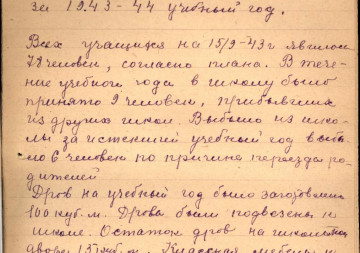 за 1943-44 учебный год.
Всех учащихся на 15/9-43г явилось
78 человек, согласно плана. В тече-
ние учебного года в школу было
принято 9 человек, прибывших
из других школ. Выбыло из шко-
лы за истекший учебный год выбы
ло 6 человек по причине переезда ро-
дителей
Дров на учебный год было заготовлено
100 куб.м. Дрова были подвезены к
школе. Остаток дров на школьном
дворе 15 куб.м. Классная мебель